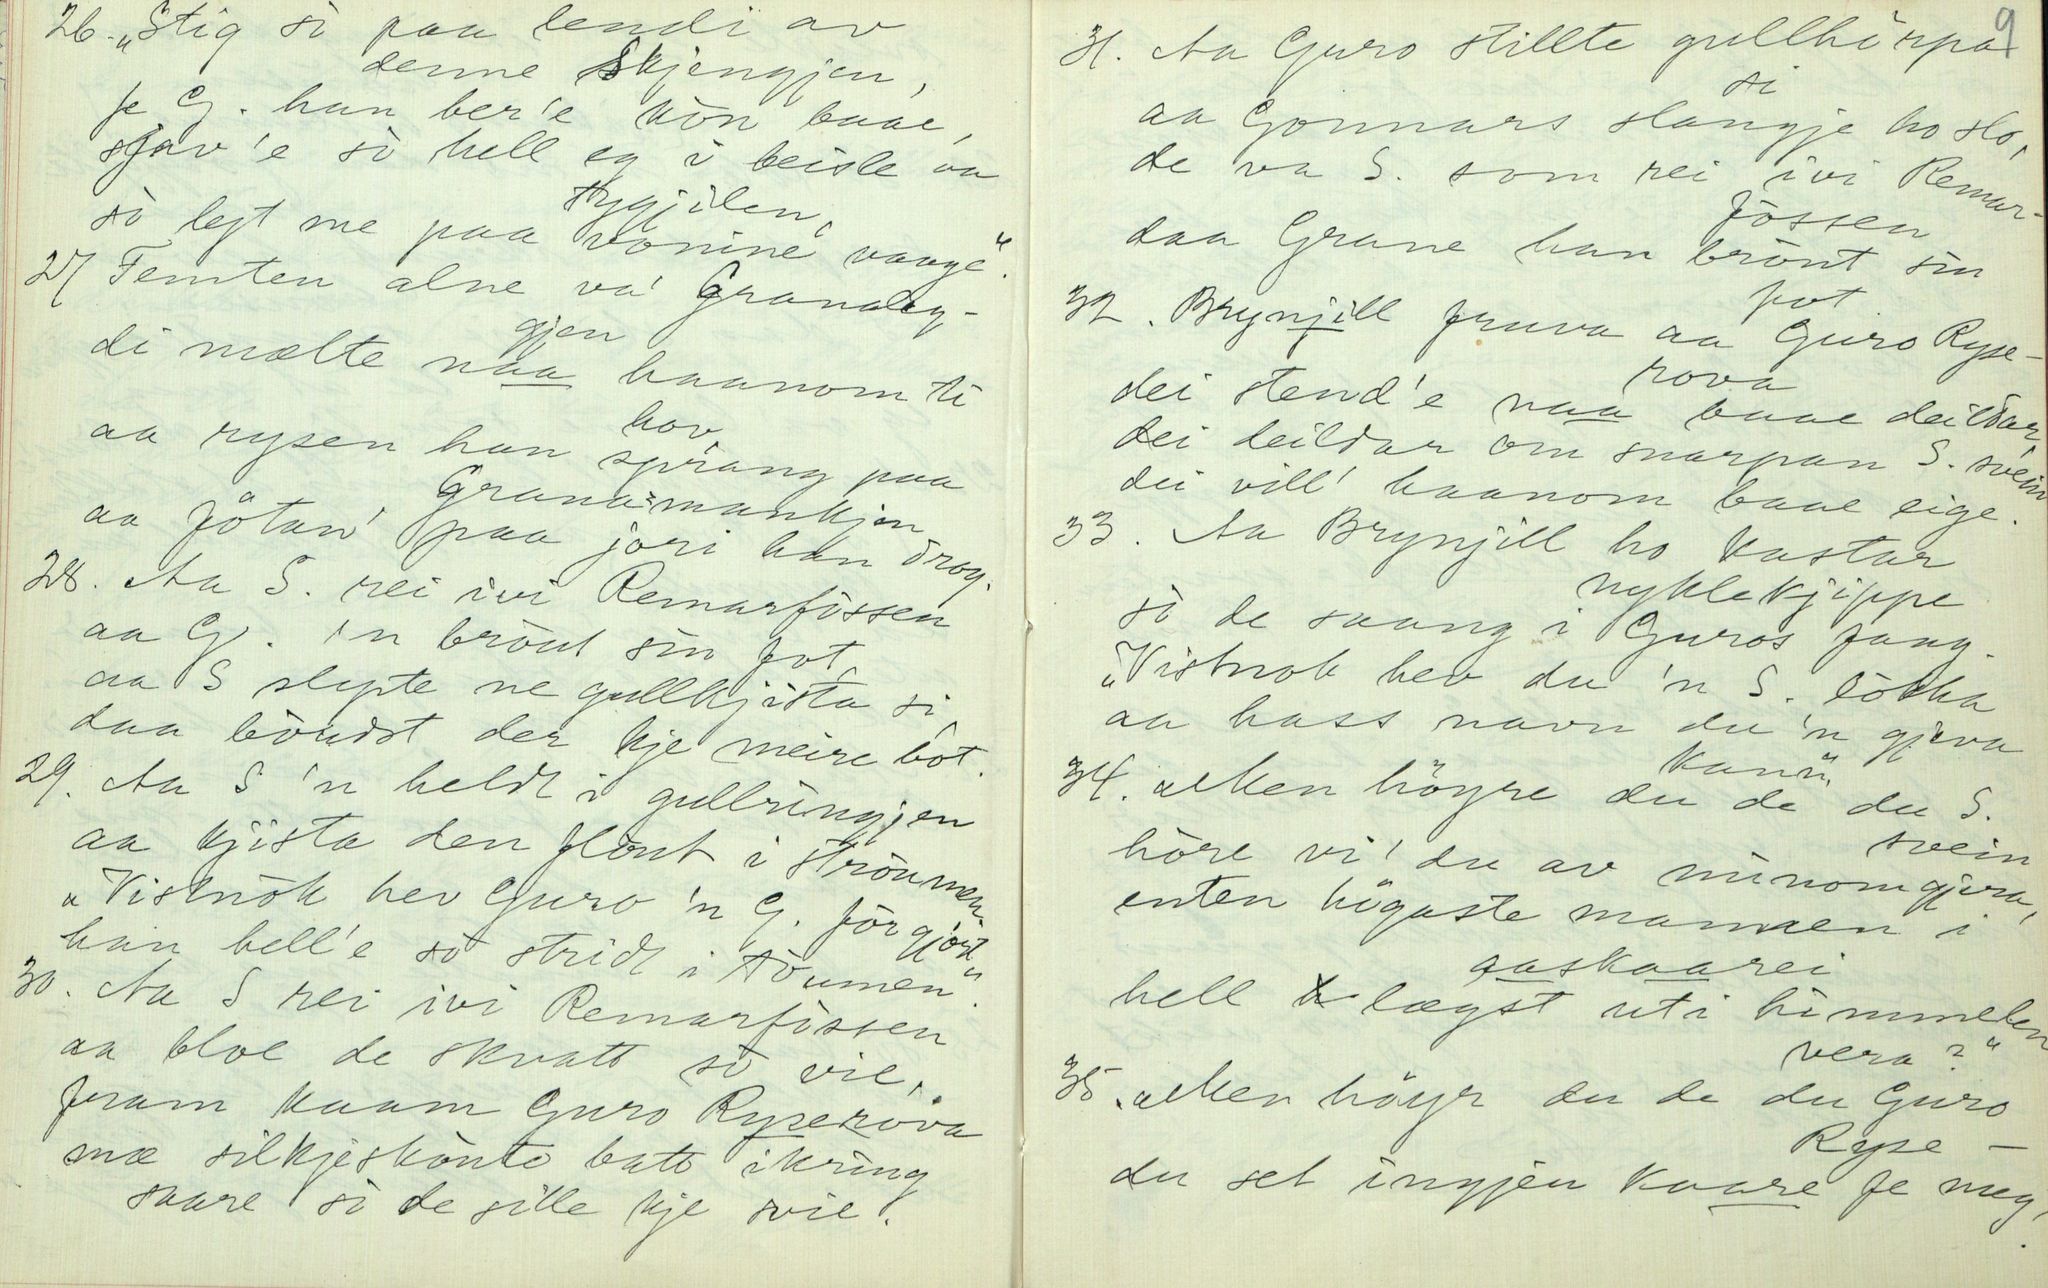 26. „Stig so paa lendi av
denne Skjengjen,
fe G. han ber'e kòn baae,
sjav'e so hell eg i beisle aa
stygjilen,
so lejt me paa vonine vaage".
27 Femten alne va' Granaleg-
gjen
di mælte naa haanom ti
hov,
aa rysen han sprang paa
Grana-mankjen
aa jötan' paa jori han drog.
28. Aa S. rei ivi Remarfossen
aa G. 'n brònt sin fot,
aa S slepte ne gullkjista si,
daa böudst der kje meire bot.
29. Aa S 'n heldt i gullringjen
aa kjista den flònt i ströumen.
„Vistnok hev Guro 'n G. forgjört
han hell'e so stridt i töumen".
30. Aa S rei ivi Remarfossen
aa bloe de skvatt so vie,
fram kaam Guro Ryserova
mæ silkjeskònto batt ikring
saare so de sille kje svie.
9
31. Aa Guro stillte gullhörpa
si
aa Gonnars slaugje ho slo,
de va S. som rei ivi Remar-
fossen
daa Grane han brònt sin
fot
32. Brynjill fruva aa Guro Ryse-
rova
dei stend'e naa baae deildar,
dei deildar om snarpan S. svein
dei vill' haanom baae eige.
33. Aa Brynjill ho kastar
nyklekjippe
so de saang i Guros fang.
„Vistnok hev du 'n S. lokka
aa hass navn du 'n gjeva
kann".
34. „Men höyre du de du S.
svein
höre vi' du av minom gjera,
enten högaste mannen i
aaskaarei
hell lægst uti himmelen
vera?"
35. „Men höyr du de du Guro
Ryse-
du set ingjen kaare fe meg,